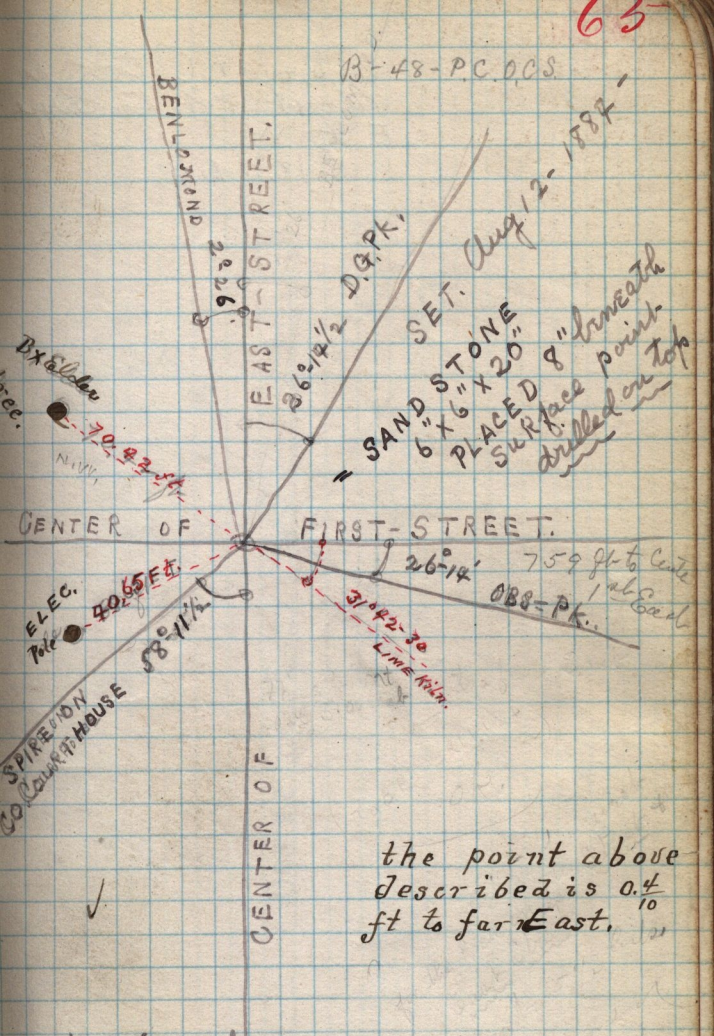 65
B-48-P.C.O.CS.
BENLOMOND
2°26'
EAST-STREET.
26°-14½
D.G.PK.
SET. Aug 12-188
= SAND STONE
6" X 6" X 20"
PLACED 8" beneath
Surface point
drilled on top
Bx Elder
70.42 ft
N.W.
CENTER OF FIRST-STREET.
26°-14'
759 ft to Cente
OBS=PK.
31°42-30
LIME Kiln.
ELEC.
Pole
40.65 Ft.
58°-11½'
SPIRE ON
CO. COURT HOUSE
CENTER OF
the point above
described is 0.4/10
ft to far East.